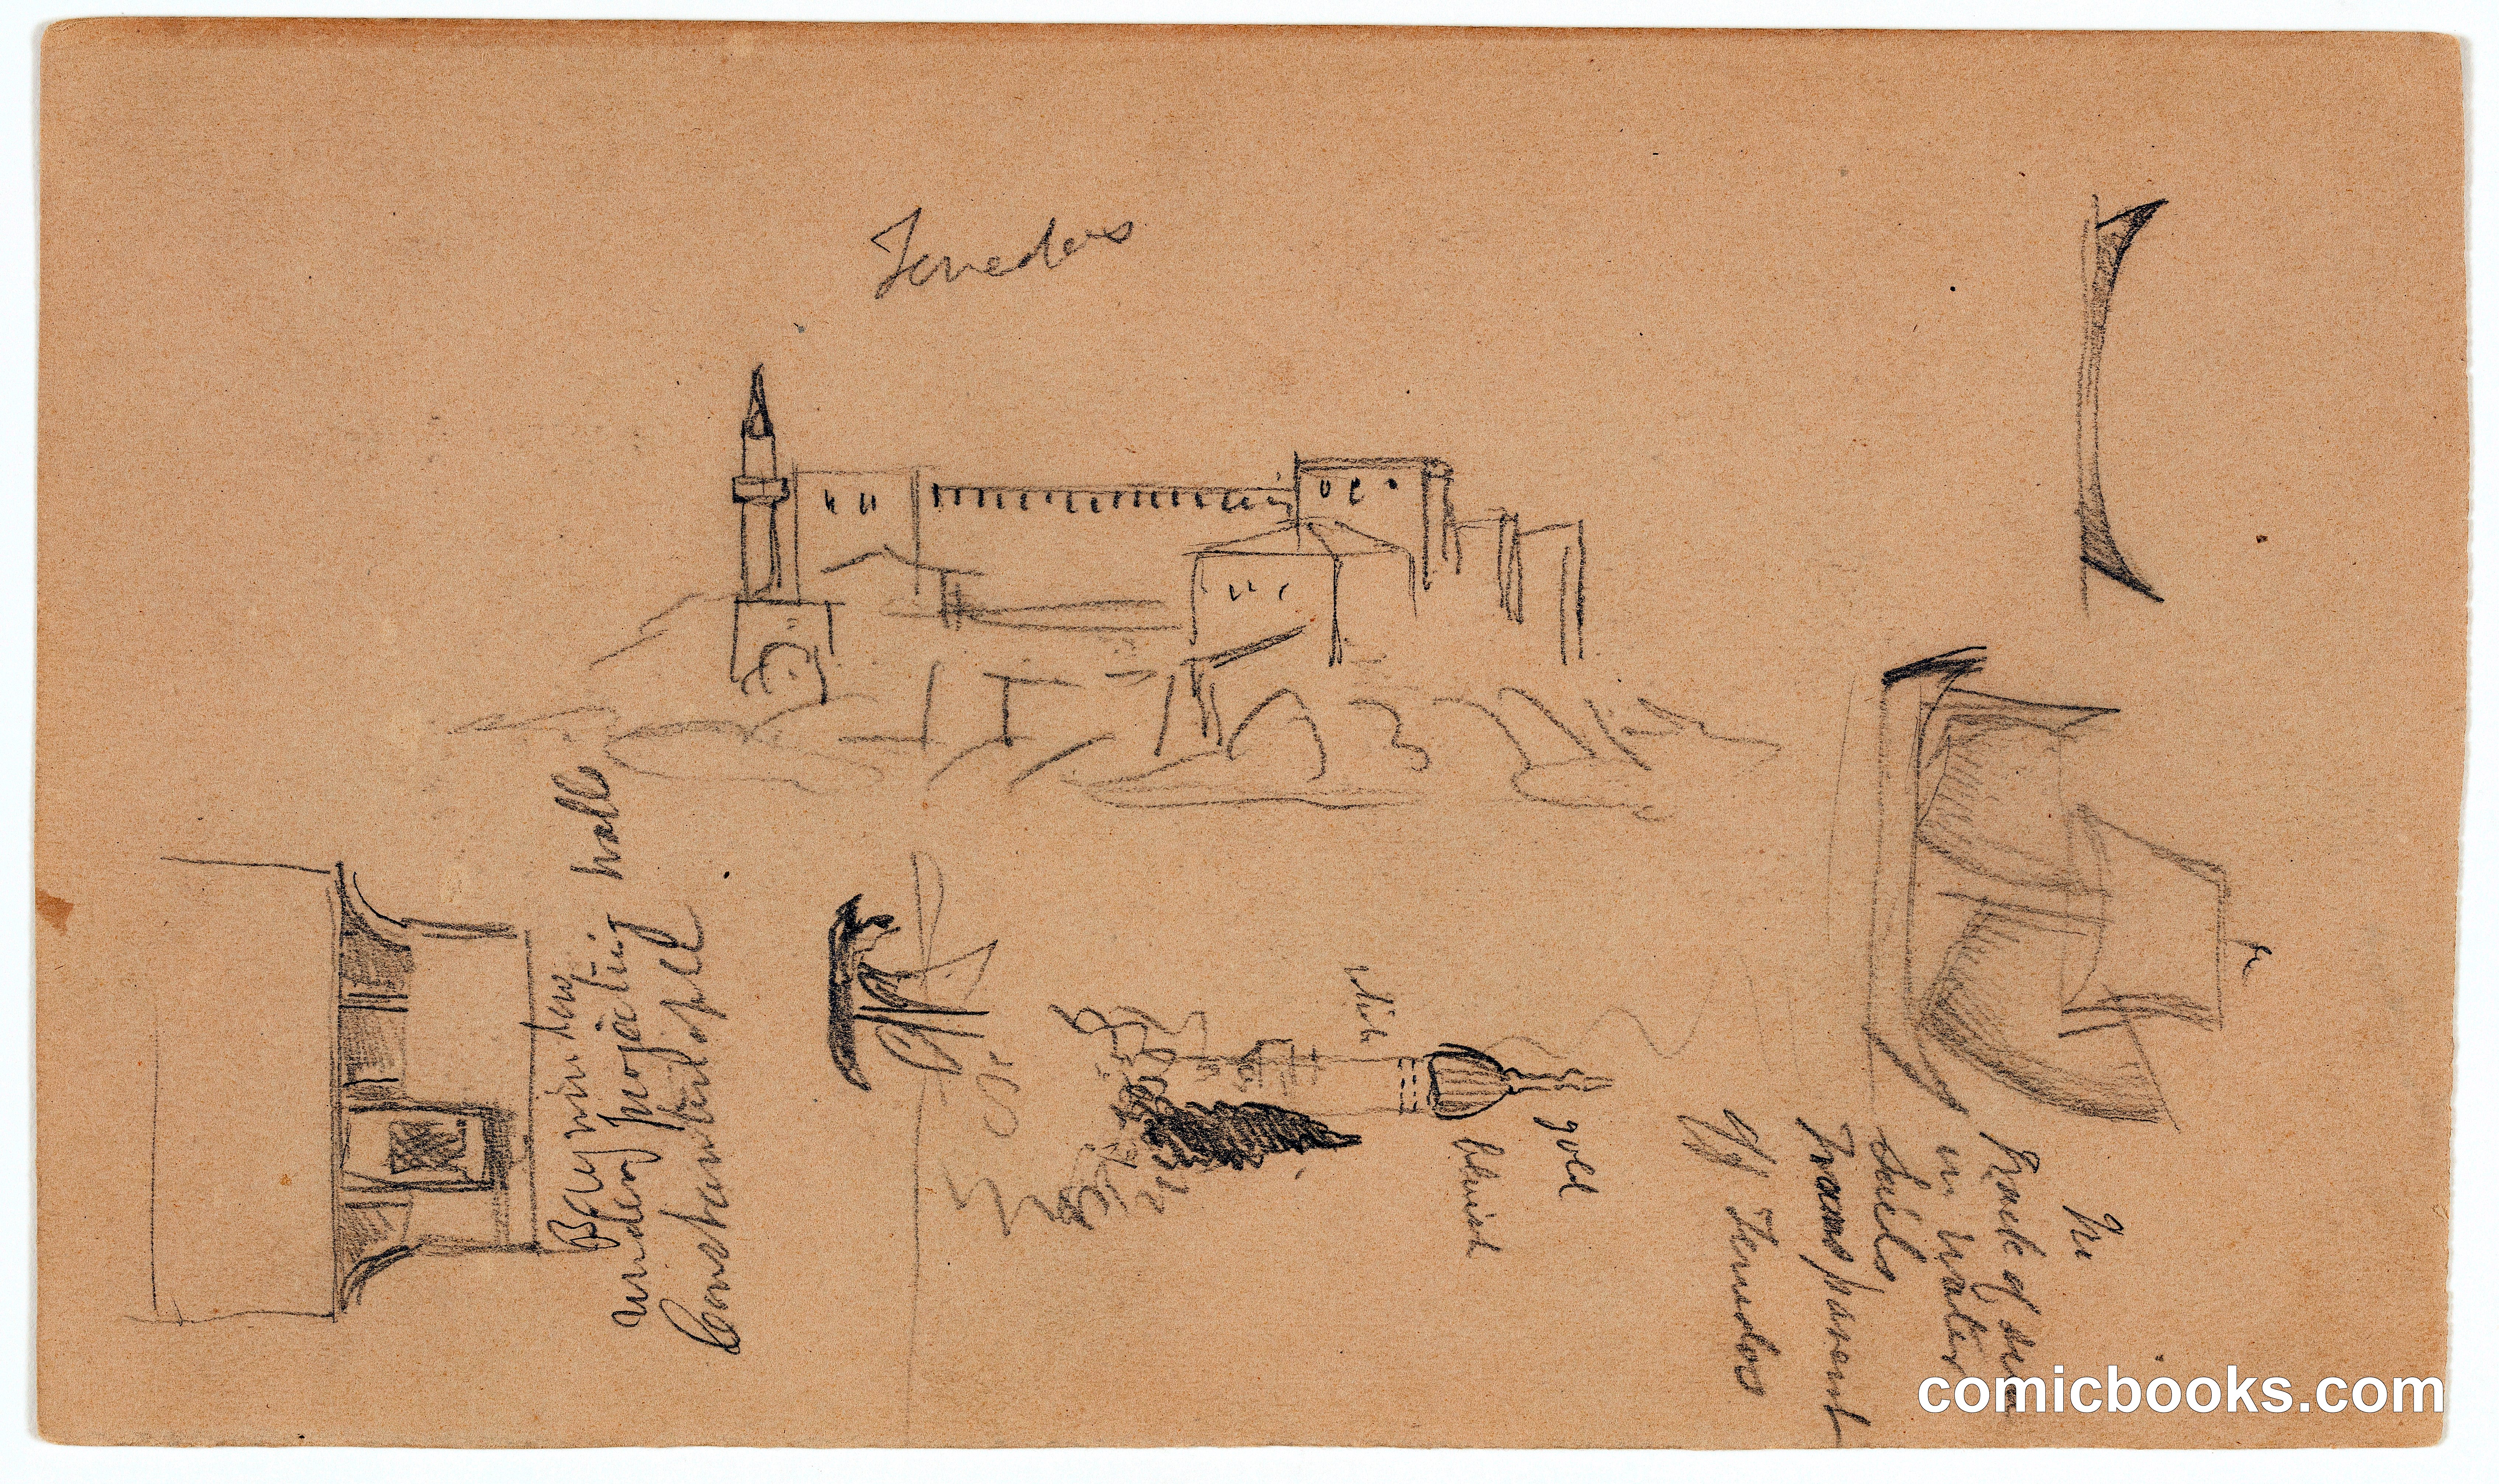 Tenedos
Bay window
under projecting wall
Constantinople
white
bluish
gold
Back of sea
in water
Sails
Transparent
Off Tenedos
comicbooks.com